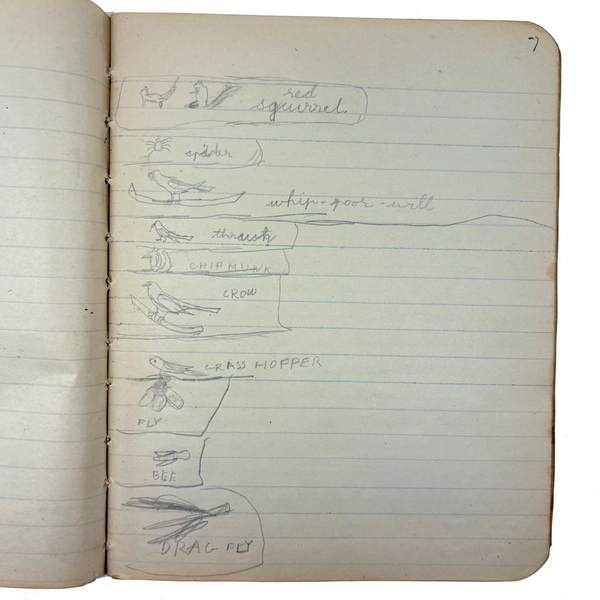 7
red
squirrel
spider
whip-poor-will
thrush
CHIPMUNK
CROW
GRASS HOPPER
FLY
BEE
DRAG FLY